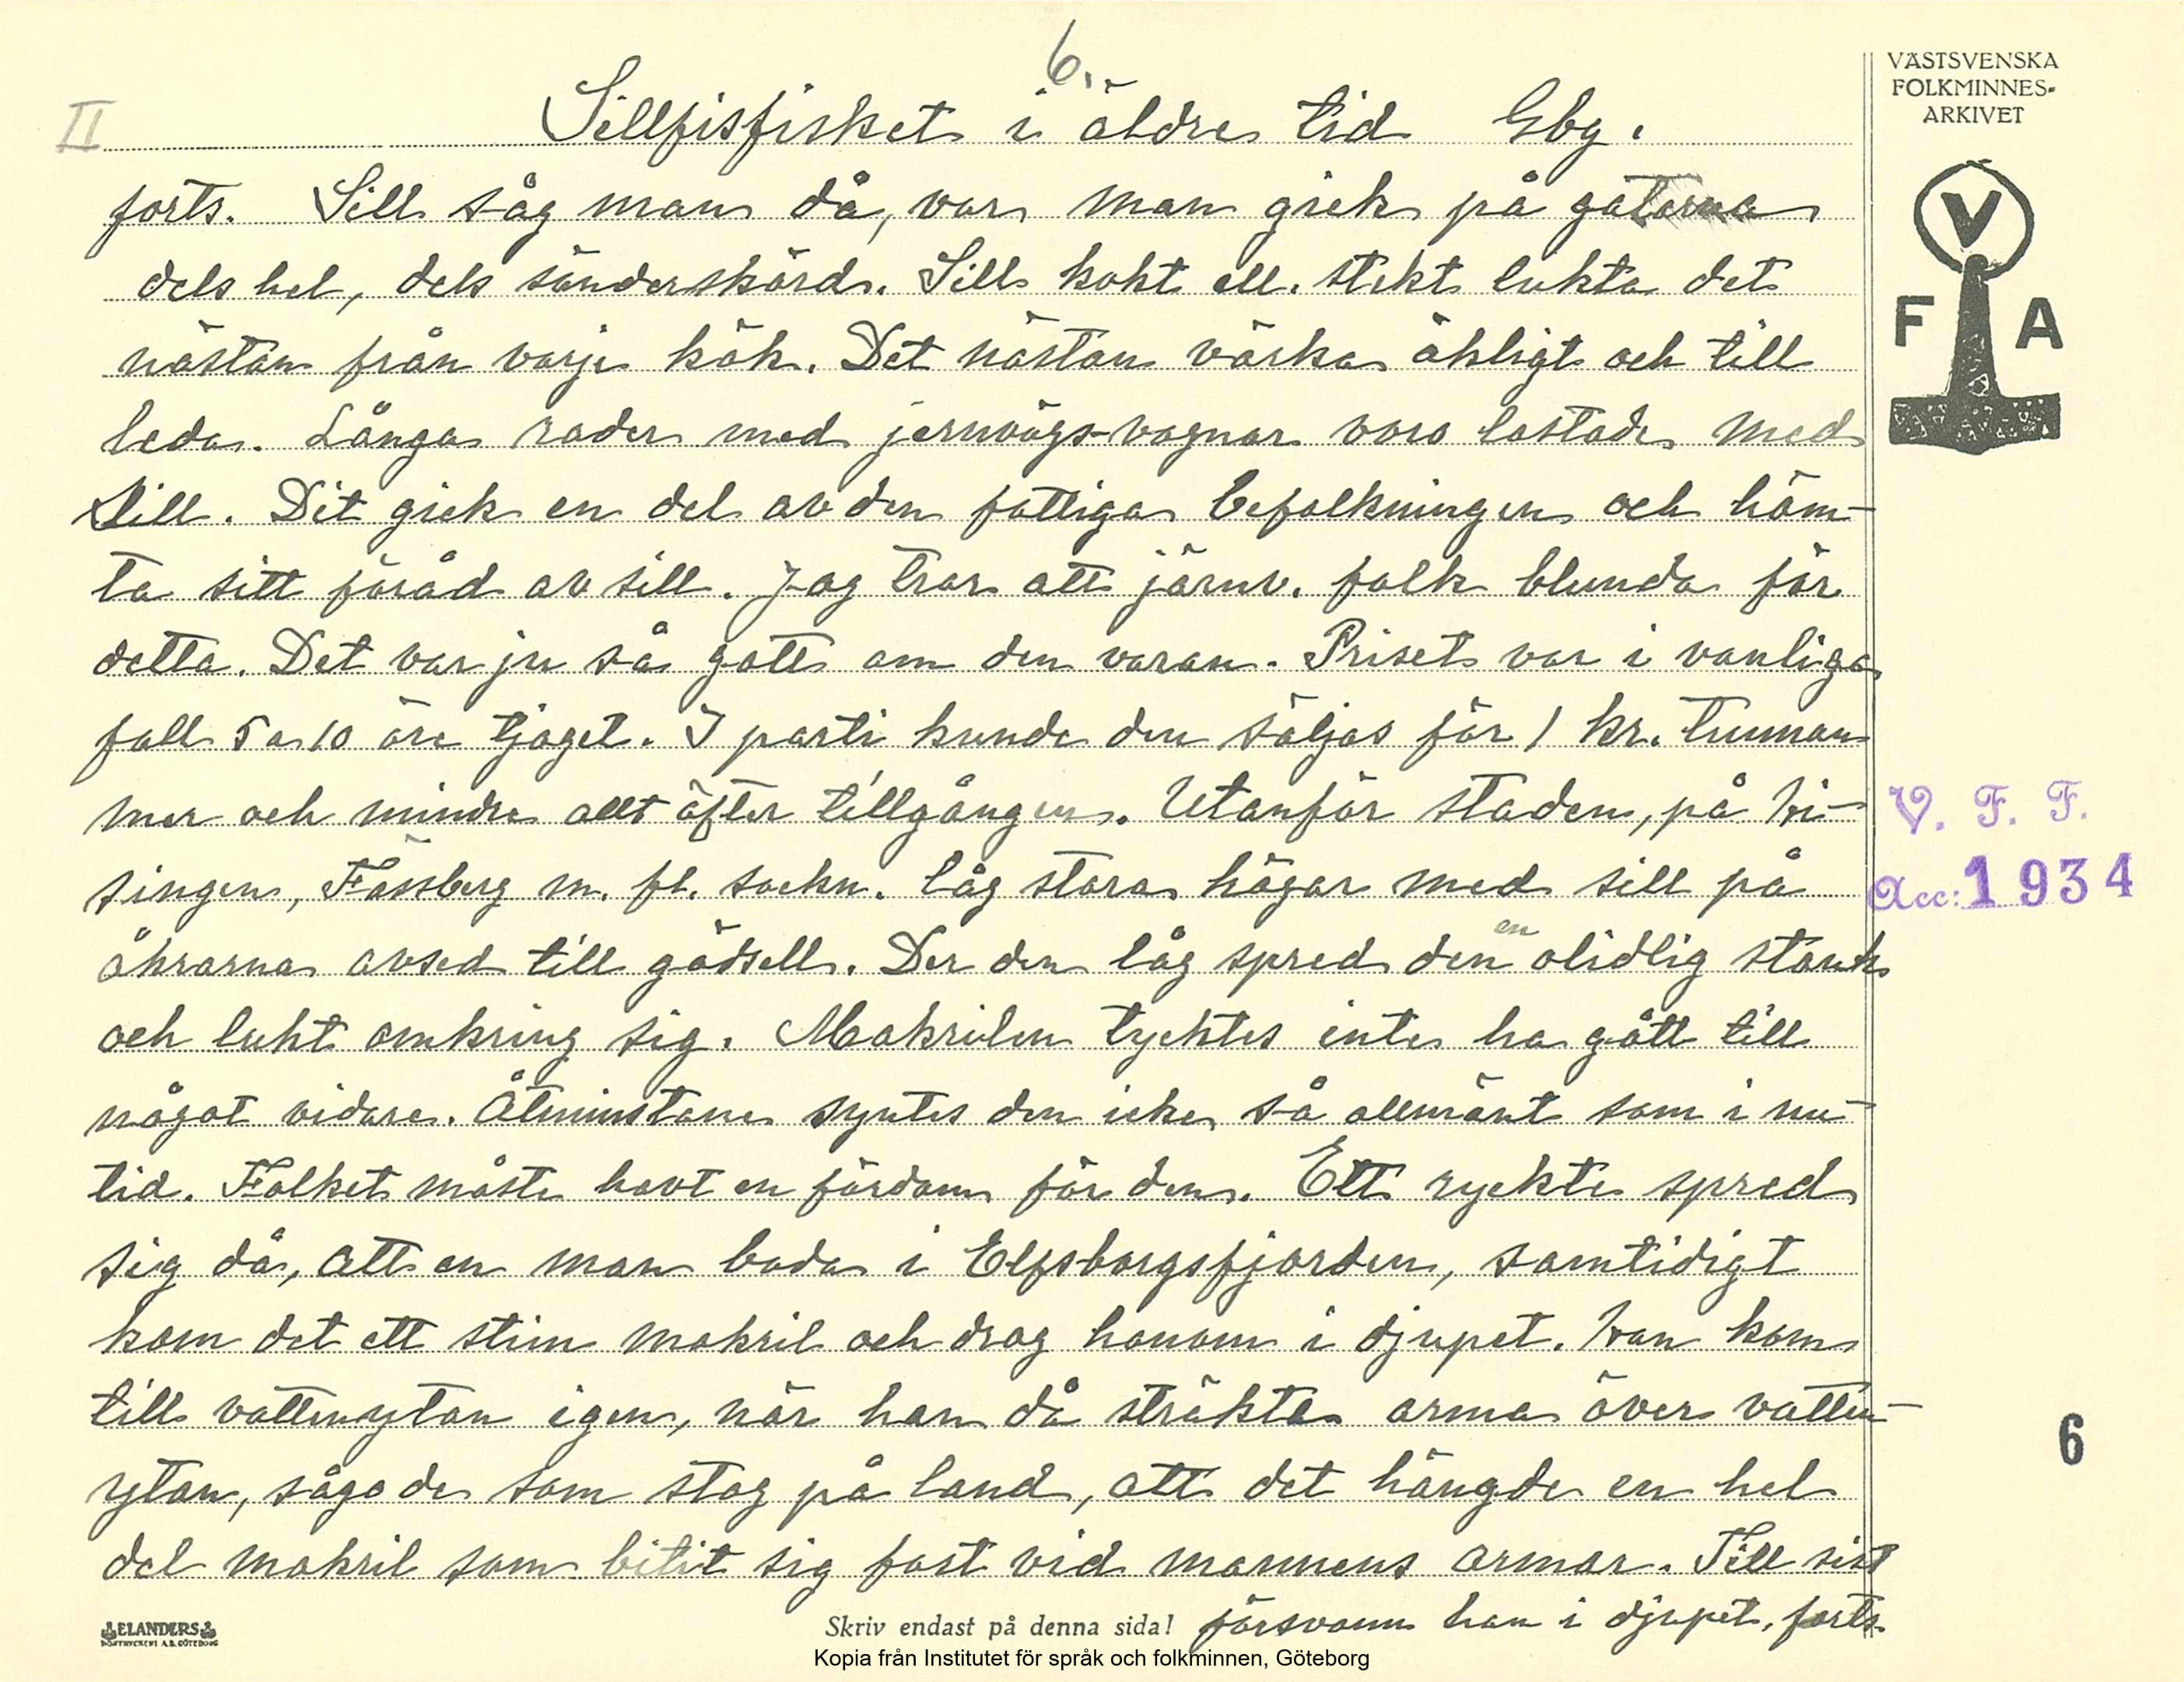 6.
VÄSTSVENSKA
FOLKMINNES-
ARKIVET
II
Sillfisfisket i äldre tid Gbg.
forts. Sill såg man då, var man gick på gatorna
dels hel, dels sönderskörd. Sill kokt ell. stekt lukta det
nästan från varje kök. Det nästan värka äkligt och till
leda. Långa rader med jernvägs-vagnar voro lastade med
Sill. Dit gick en del av den fattiga befolkningen och häm-
ta sitt föråd av sill. Jag tror att järnv. folk blunda för
detta. Det var ju så gott om den varan. Priset var i vanliga
fall 5 a 10 öre tjoget. I parti kunde den säljas för 1 kr. tunnan
mer och mindre allt äfter tillgången. Utanför staden, på Hi-
singen, Fässberg m. fl. sockn. låg stora högar med sill på
åkrarna avsed till gödsell. Der den låg spred den en olidlig stank
och lukt omkring sig. Makrilen tycktes inte ha gått till
något vidare. Åtminstone syntes den icke så allmänt som i nu-
tid. Folket måste havt en fördom för den. Ett ryckte spred
sig då, att en man bada i Elfsborgsfjorden, samtidigt
kom det ett stim makril och drog honom i djupet. Han kom
till vattenytan igen, när han då sträkte arma över vatten-
ytan, sågo de som stog på land, att det hängde en hel
del makril som bitit sig fast vid mannens armar. Till sist
försvann han i djupet, forts.
V
F A
V. F. F.
Acc: 1934
6
ELANDERS
BOKTRYCKERI A.B. GÖTEBORG
Skriv endast på denna sida!
Kopia från Institutet för språk och folkminnen, Göteborg